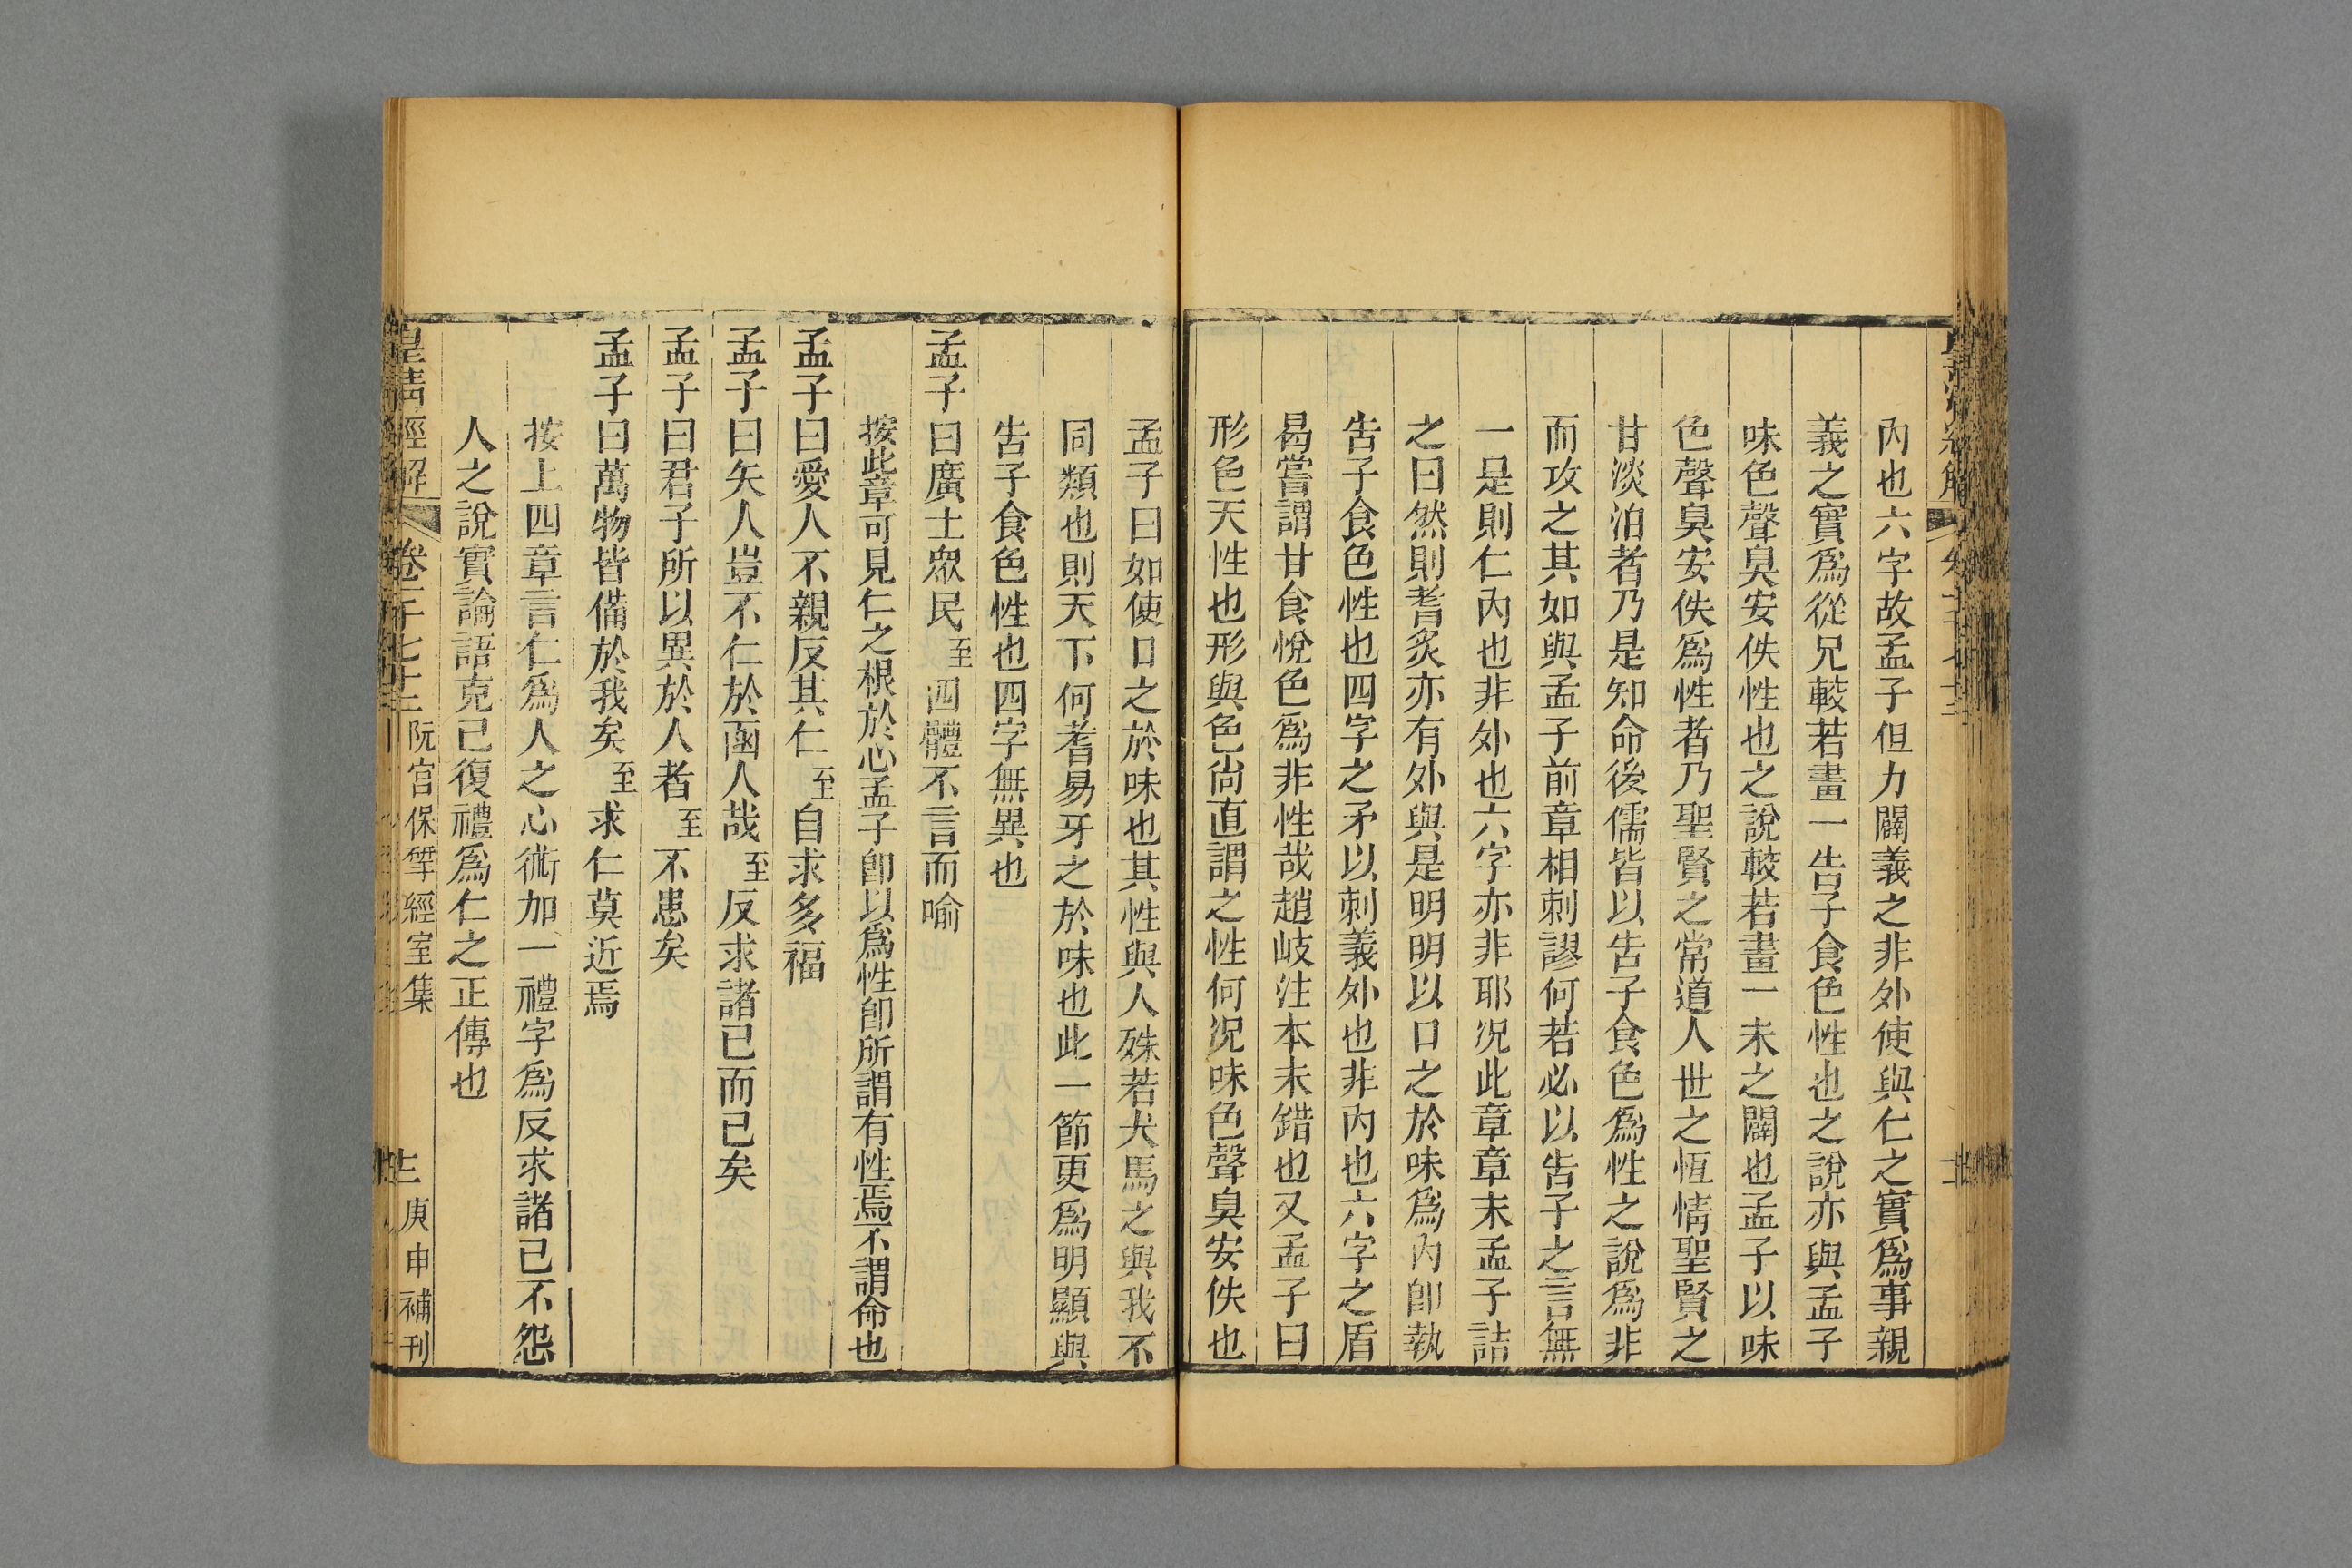 內也六字故孟子但力闢義之非外使與仁之實爲事親
義之實爲從兄較若畫一告子食色性也之說亦與孟子
味色聲臭安佚性也之說較若畫一未之闢也孟子以味
色聲臭安佚爲性者乃聖賢之常道人世之恆情聖賢之
甘淡泊者乃是知命後儒皆以告子食色爲性之說爲非
而攻之其如與孟子前章相刺謬何若必以告子之言無
一是則仁內也非外也六字亦非耶況此章章末孟子詰
之曰然則耆炙亦有外與是明明以口之於味爲內卽執
告子食色性也四字之矛以刺義外也非內也六字之盾
曷嘗謂甘食悅色爲非性哉趙岐注本未錯也又孟子曰
形色天性也形與色尙直謂之性何況味色聲臭安佚也
孟子曰如使口之於味也其性與人殊若犬馬之與我不
同類也則天下何耆易牙之於味也此一節更爲明顯與
告子食色性也四字無異也
孟子曰廣土眾民至四體不言而喻
按此章可見仁之根於心孟子卽以爲性卽所謂有性焉不謂命也
孟子曰愛人不親反其仁至自求多福
孟子曰矢人豈不仁於函人哉至反求諸已而已矣
孟子曰君子所以異於人者至不患矣
孟子曰萬物皆備於我矣至求仁莫近焉
按上四章言仁爲人之心術加一禮字爲反求諸已不怨
人之說實論語克已復禮爲仁之正傳也
皇清經解 卷一千七十三 阮宮保揅經室集 庚申補刊